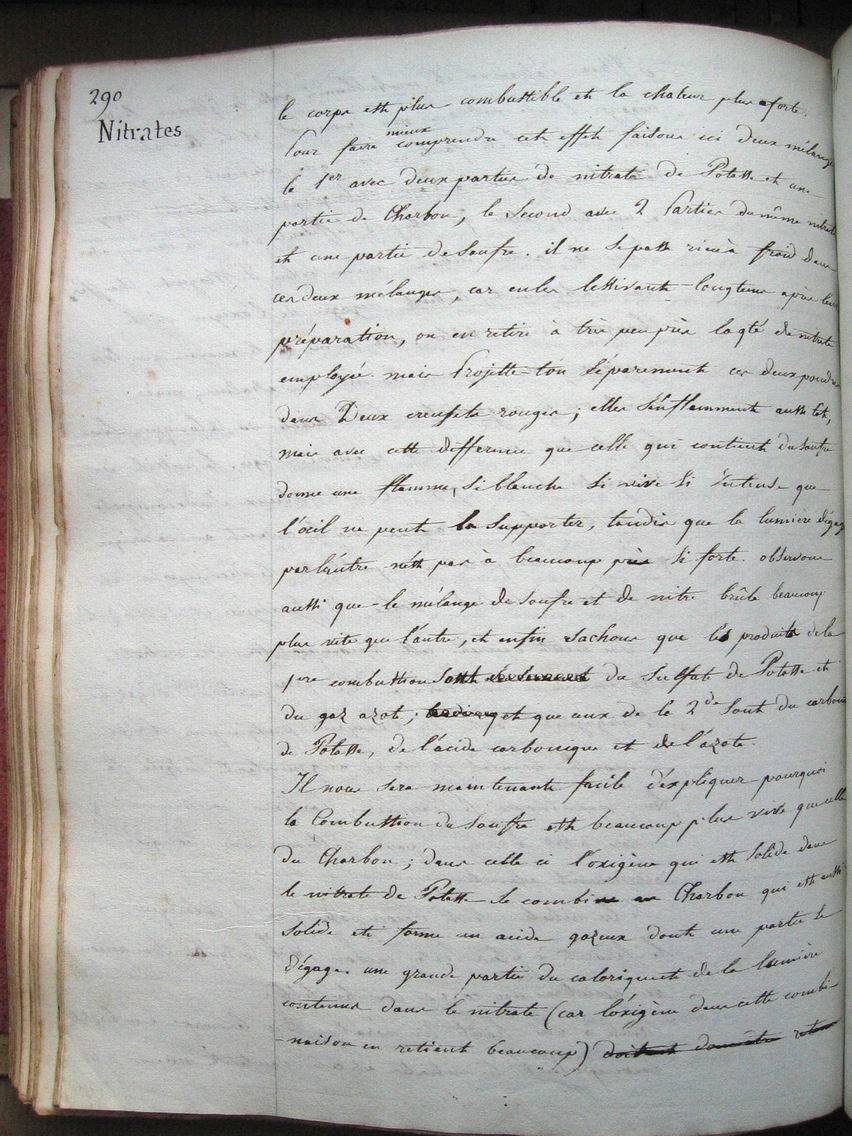 290
Nitrates
le corps est plus combustible et la chaleur plus forte.
Pour faire mieux comprendre cet effet faisons ici deux mélanges
le 1er avec deux parties de nitrate de Potasse et une
partie de Charbon; le Second avec 2 Parties du même nitrate
et une partie de Soufre. il ne se passe rien à froid dans
ces deux mélanges, car en les lessivant longtems après leur
préparation, on en retire à très peu près la qté de nitrate
employée. mais Projette-t'on Séparement ces deux poudres
dans Deux creusets rouges; elles s'enflamment aussitôt,
mais avec cette difference que celle qui contient du soufre
donne une flamme, si blanche si vive si intense que
l'oeil ne peut la supporter, tandis que la lumière dégagée
par l'autre n'est pas à beaucoup près si forte. observons
aussi que le mélange de soufre et de nitre brûle beaucoup
plus vite que l'autre, et enfin sachons que les produits de la
1ere combustion sont du sulfate de Potasse et
du gaz azot; que ceux de la 2de sont du carbonate
de Potasse, de l'acide carbonique et de l'azote.
Il nous sera maintenant facile d'expliquer pourquoi
la Combustion du Soufre est beaucoup plus vive que celle
du Charbon; dans celle ci l'oxigène qui est solide dans
le nitrate de Potasse se combine au Charbon qui est aussi
solide et forme un acide gazeux dont une partie se
dégage. une grande partie du calorique et de la lumière
contenus dans le nitrate (car l'oxigène dans cette combi-
-naison en retient beaucoup)